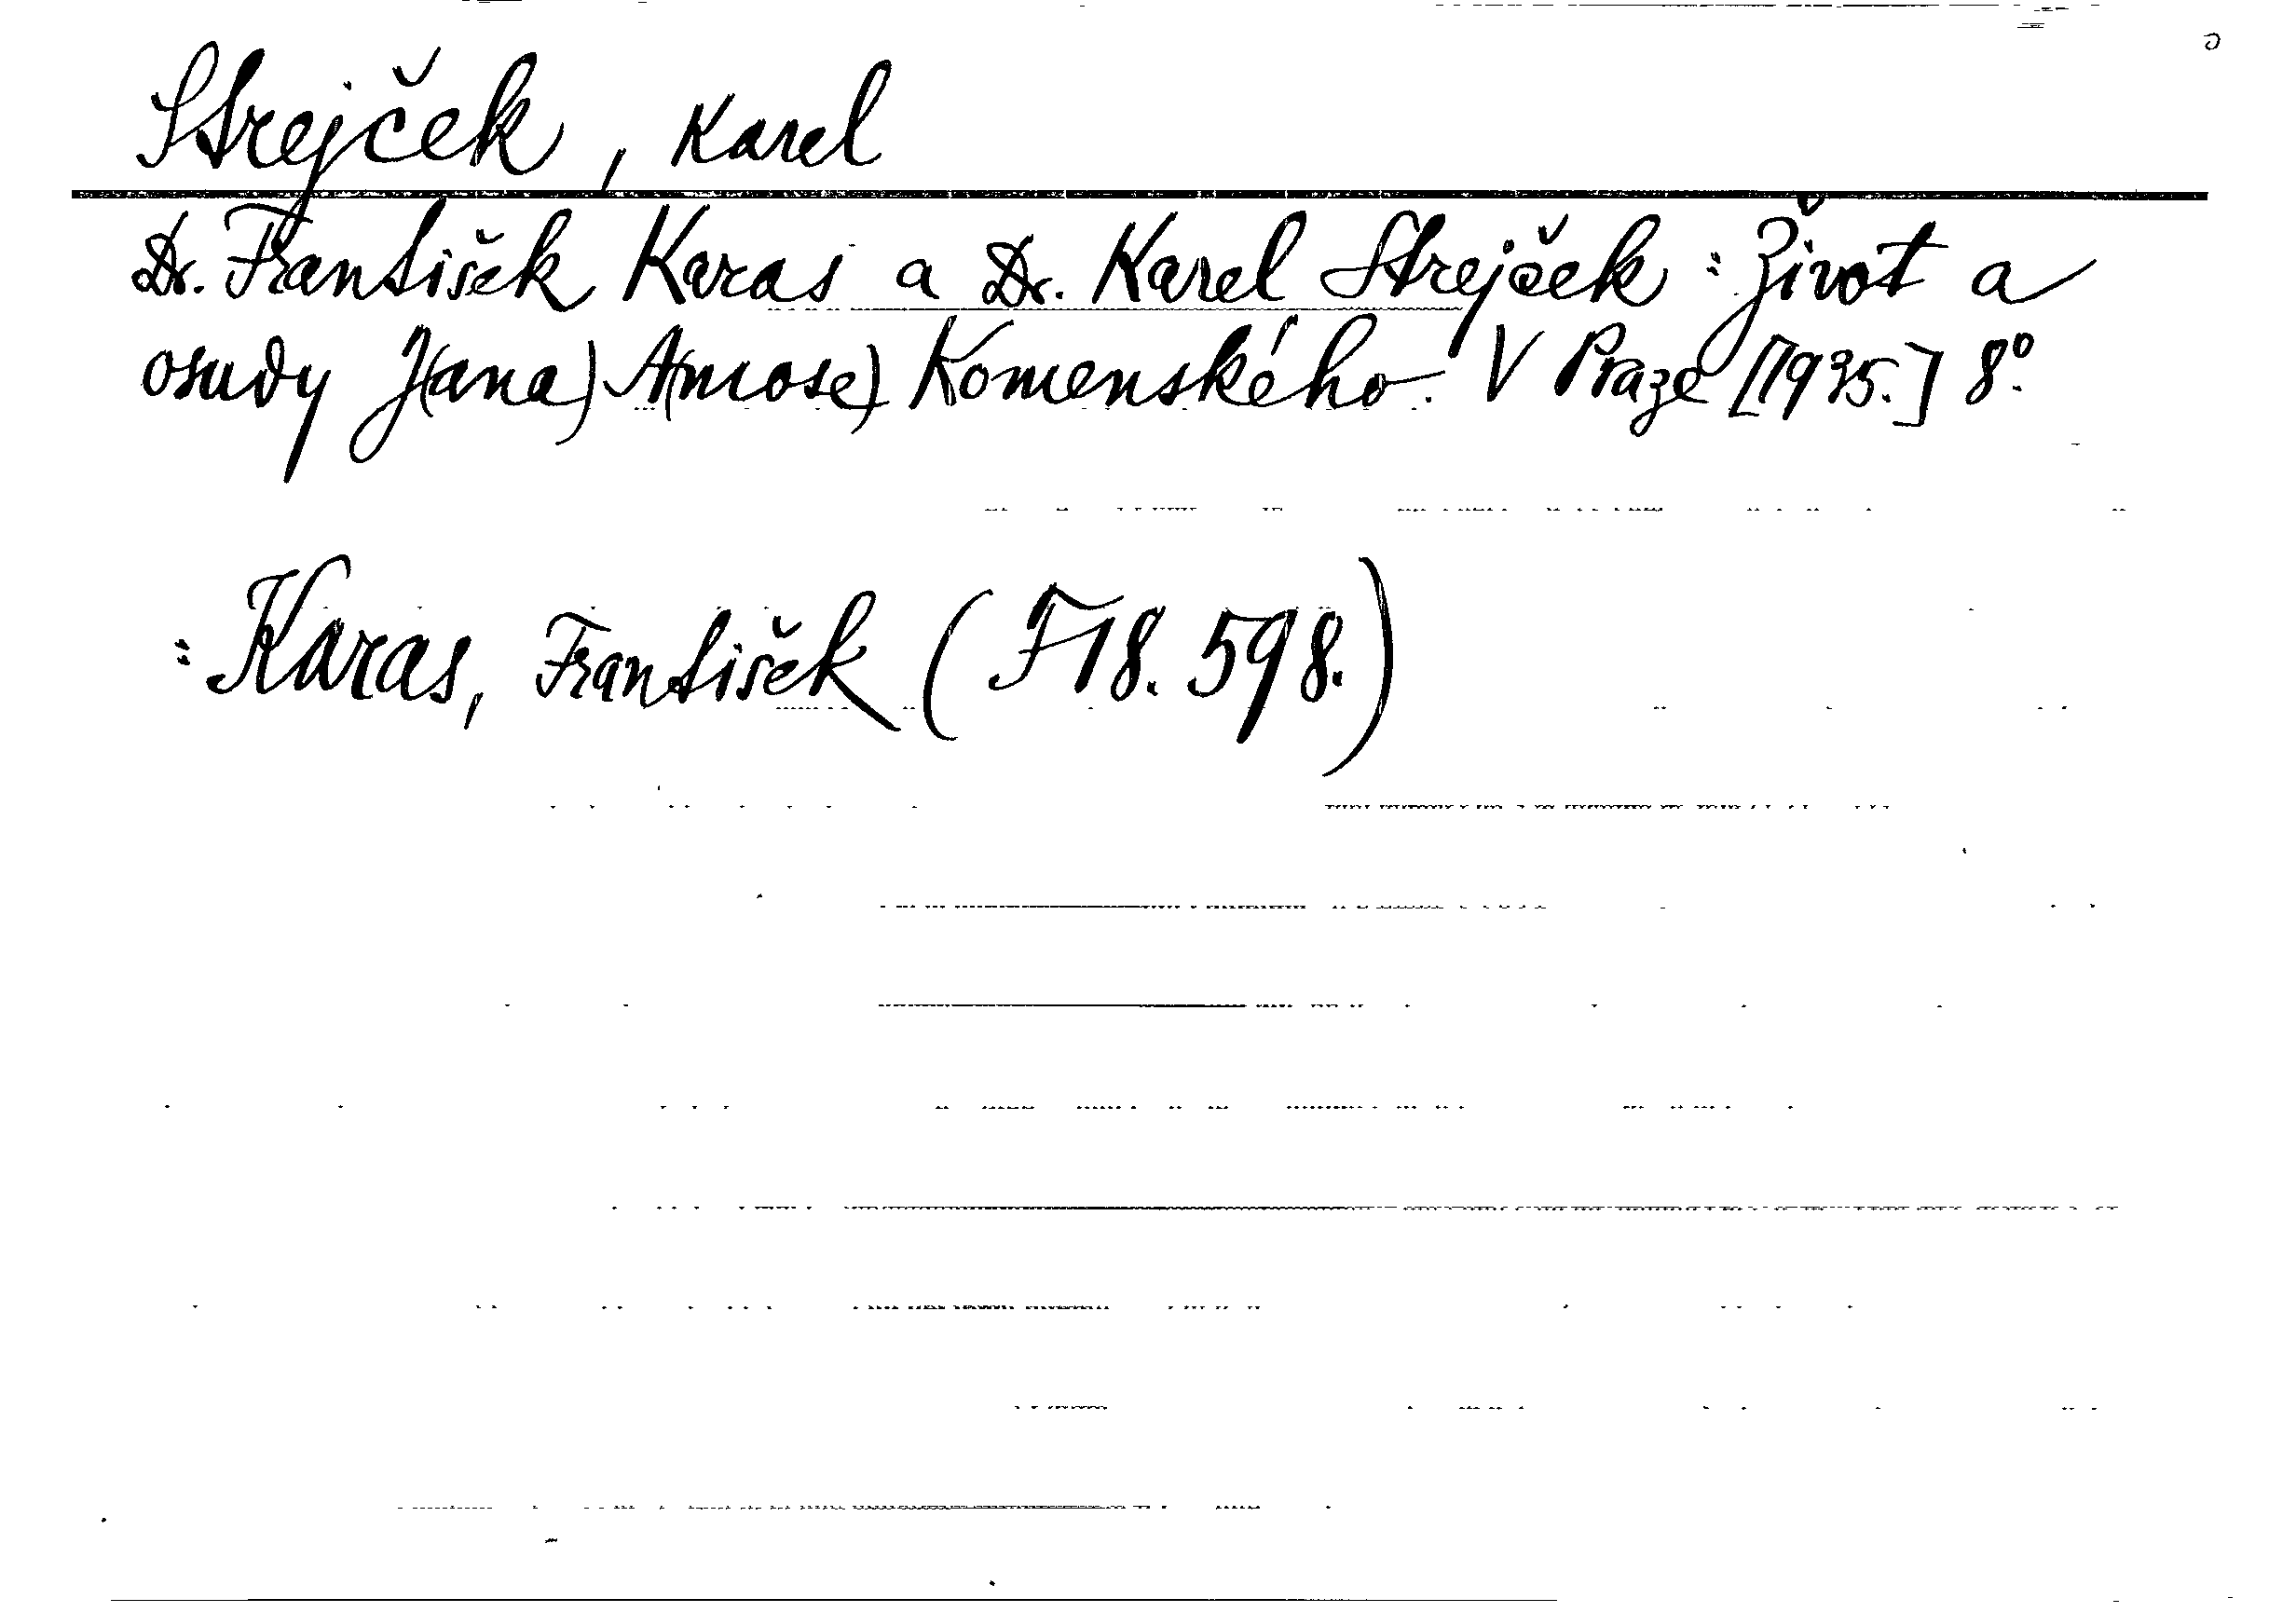 Strejček, Karel
Dr. František Karas a Dr. Karel Strejček: Život a
osudy J(ana) A(mose) Komenského. V Praze [1935.] 8°.
: Karas, František (F18.598.)